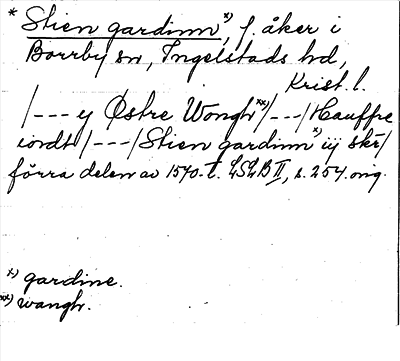 * Stien gardinn x), f. åker i
Borrby sn, Ingelstads hd,
Krist. l.
/--- y Østre Wongh xx)/---/Hauffre
iordt/---/Stien gardinn x) iij skr/
förra delen av 1570-t. LSLB II, s. 254. orig.
x) gardine.
xx) wangh.